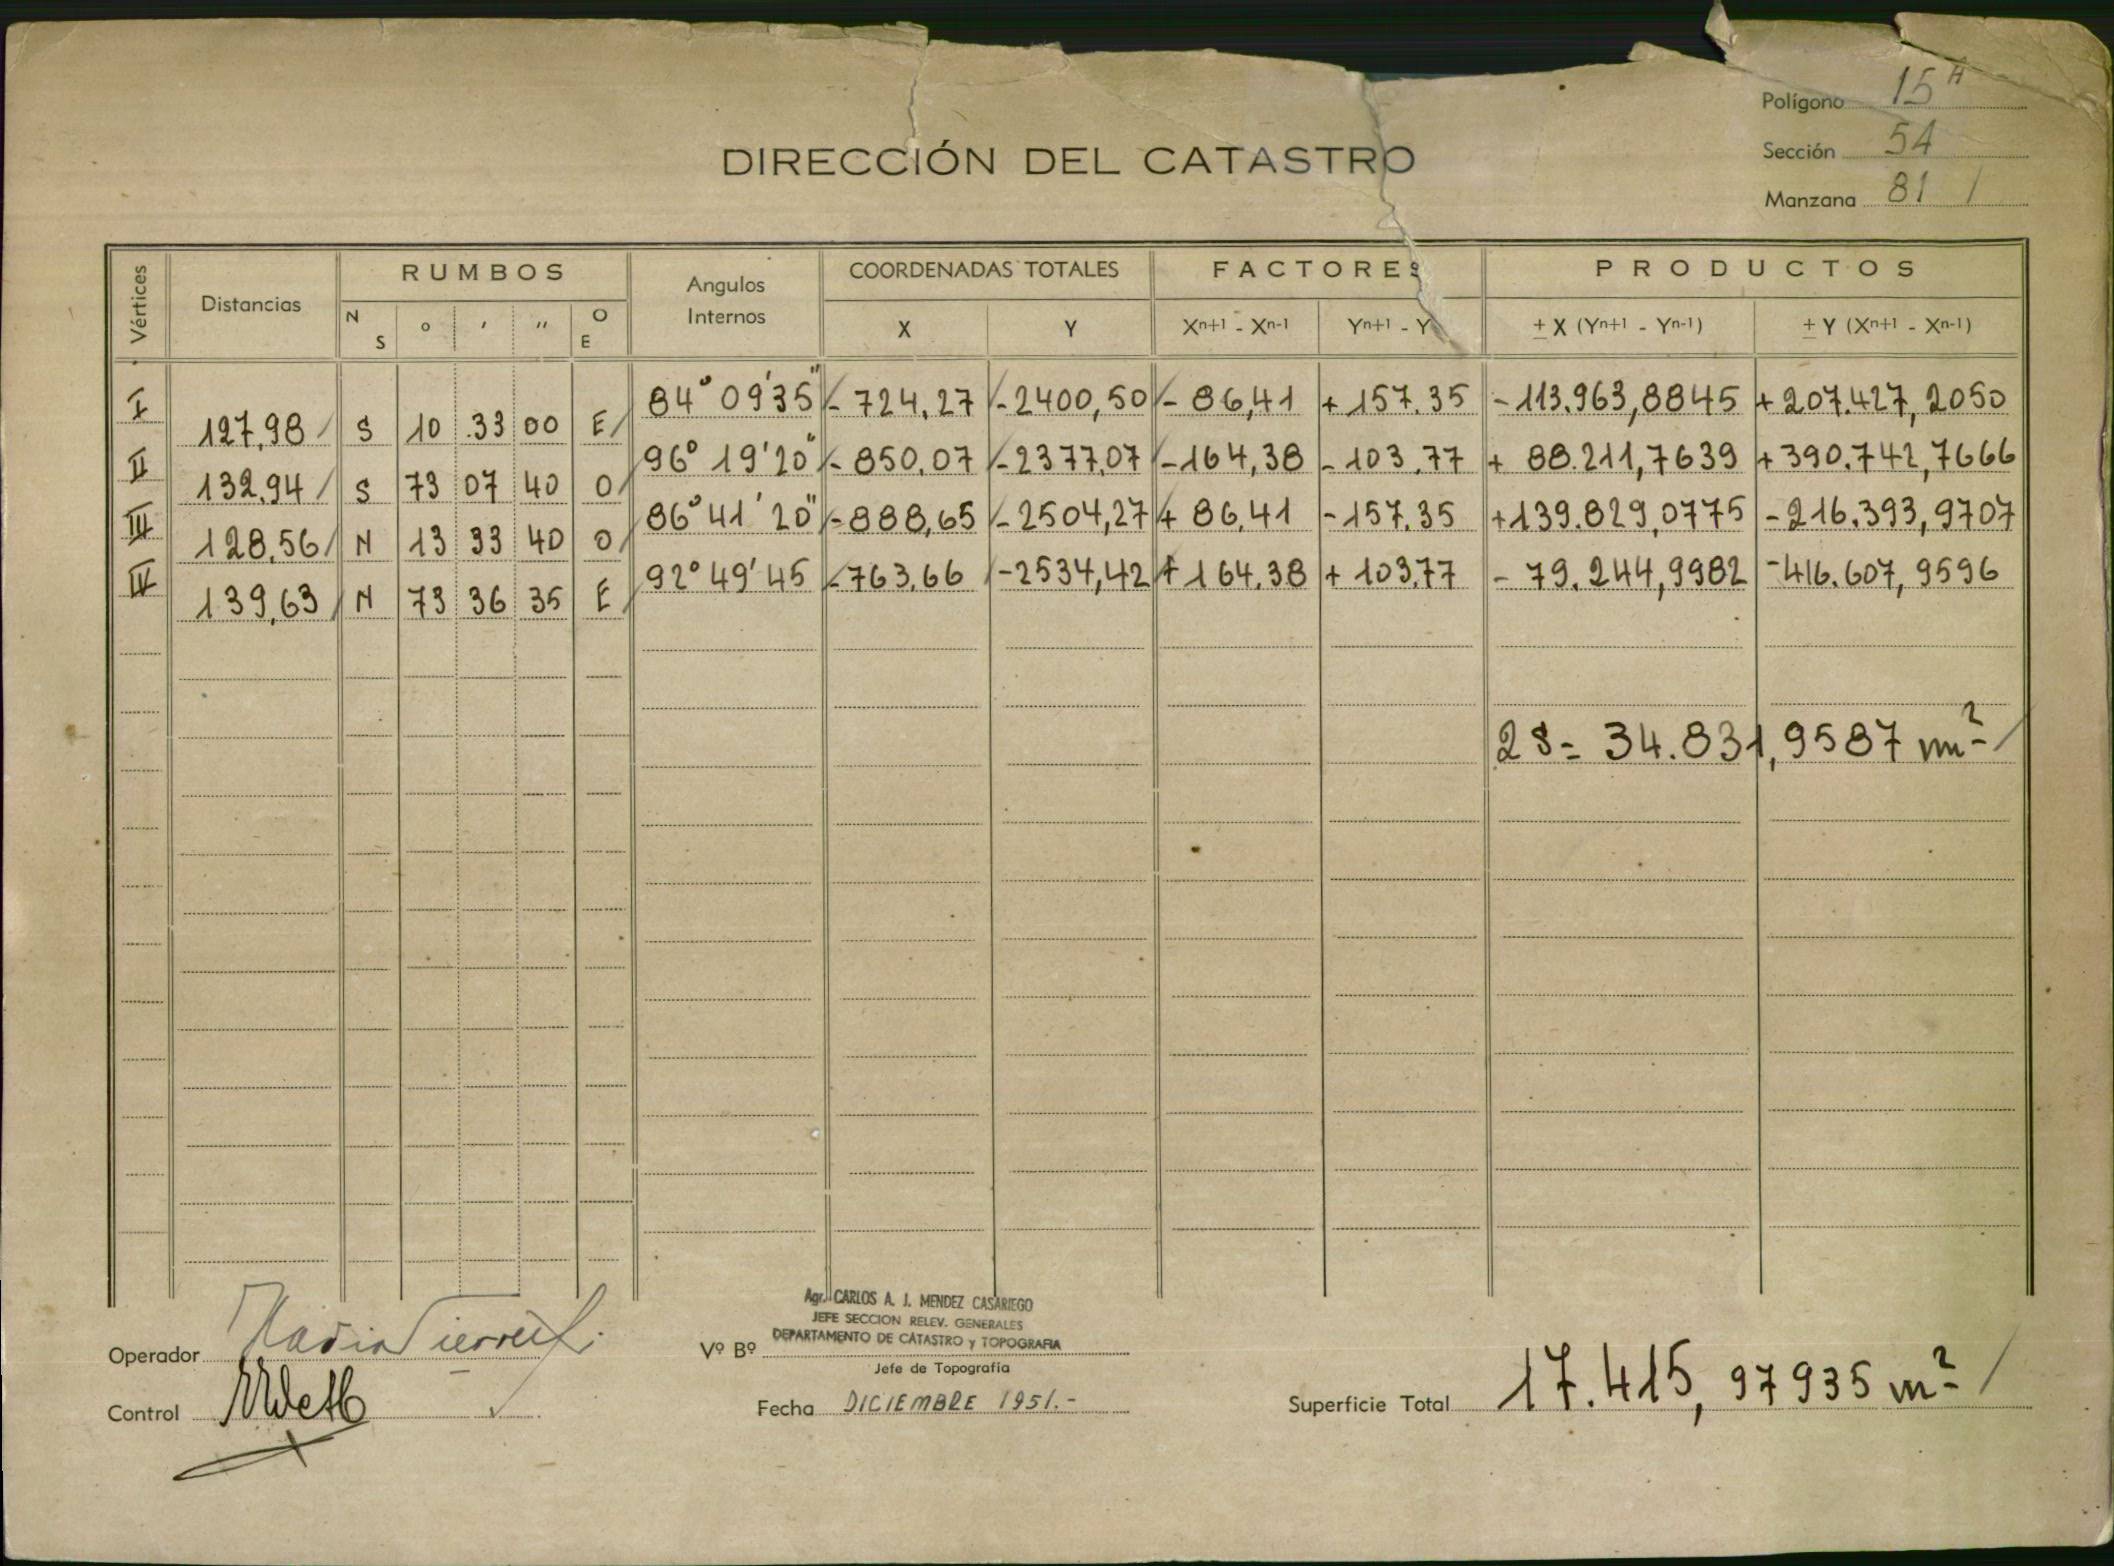 Polígono 15 A
Sección 54
Manzana 81 /
DIRECCIÓN DEL CATASTRO
Vértices Distancias RUMBOS Angulos Internos COORDENADAS TOTALES FACTORES PRODUCTOS
N S ° ' '' O E X Y Xn+1 - Xn-1 Yn+1 - Y ± X (Yn+1 - Yn-1) ± Y (Xn+1 - Xn-1)
I 84° 09'35" - 724,27 - 2400,50 - 86,41 + 157.35 - 113.963,8845 + 207.427,2050
127,98 S 10 33 00 E
II 96° 19'20" - 850,07 - 2377,07 - 164,38 - 103.77 + 88.211,7639 + 390.742,7666
132.94 S 73 07 40 O
III 86° 41' 20" - 888,65 - 2504,27 + 86,41 - 157.35 + 139.829,0775 - 216.393,9707
128,56 N 13 33 40 O
IV 92° 49' 45 - 763,66 - 2534,42 + 164,38 + 103,77 - 79.244,9982 - 416.607,9596
139,63 N 73 36 35 E
2 S = 34.831,9587 m²
Agr. CARLOS A. J. MENDEZ CASARIEGO
JEFE SECCION RELEV. GENERALES
DEPARTAMENTO DE CATASTRO y TOPOGRAFIA
Operador
Vº Bº
Jefe de Topografía
Control
Fecha DICIEMBRE 1951.-
Superficie Total 17.415,97935 m²